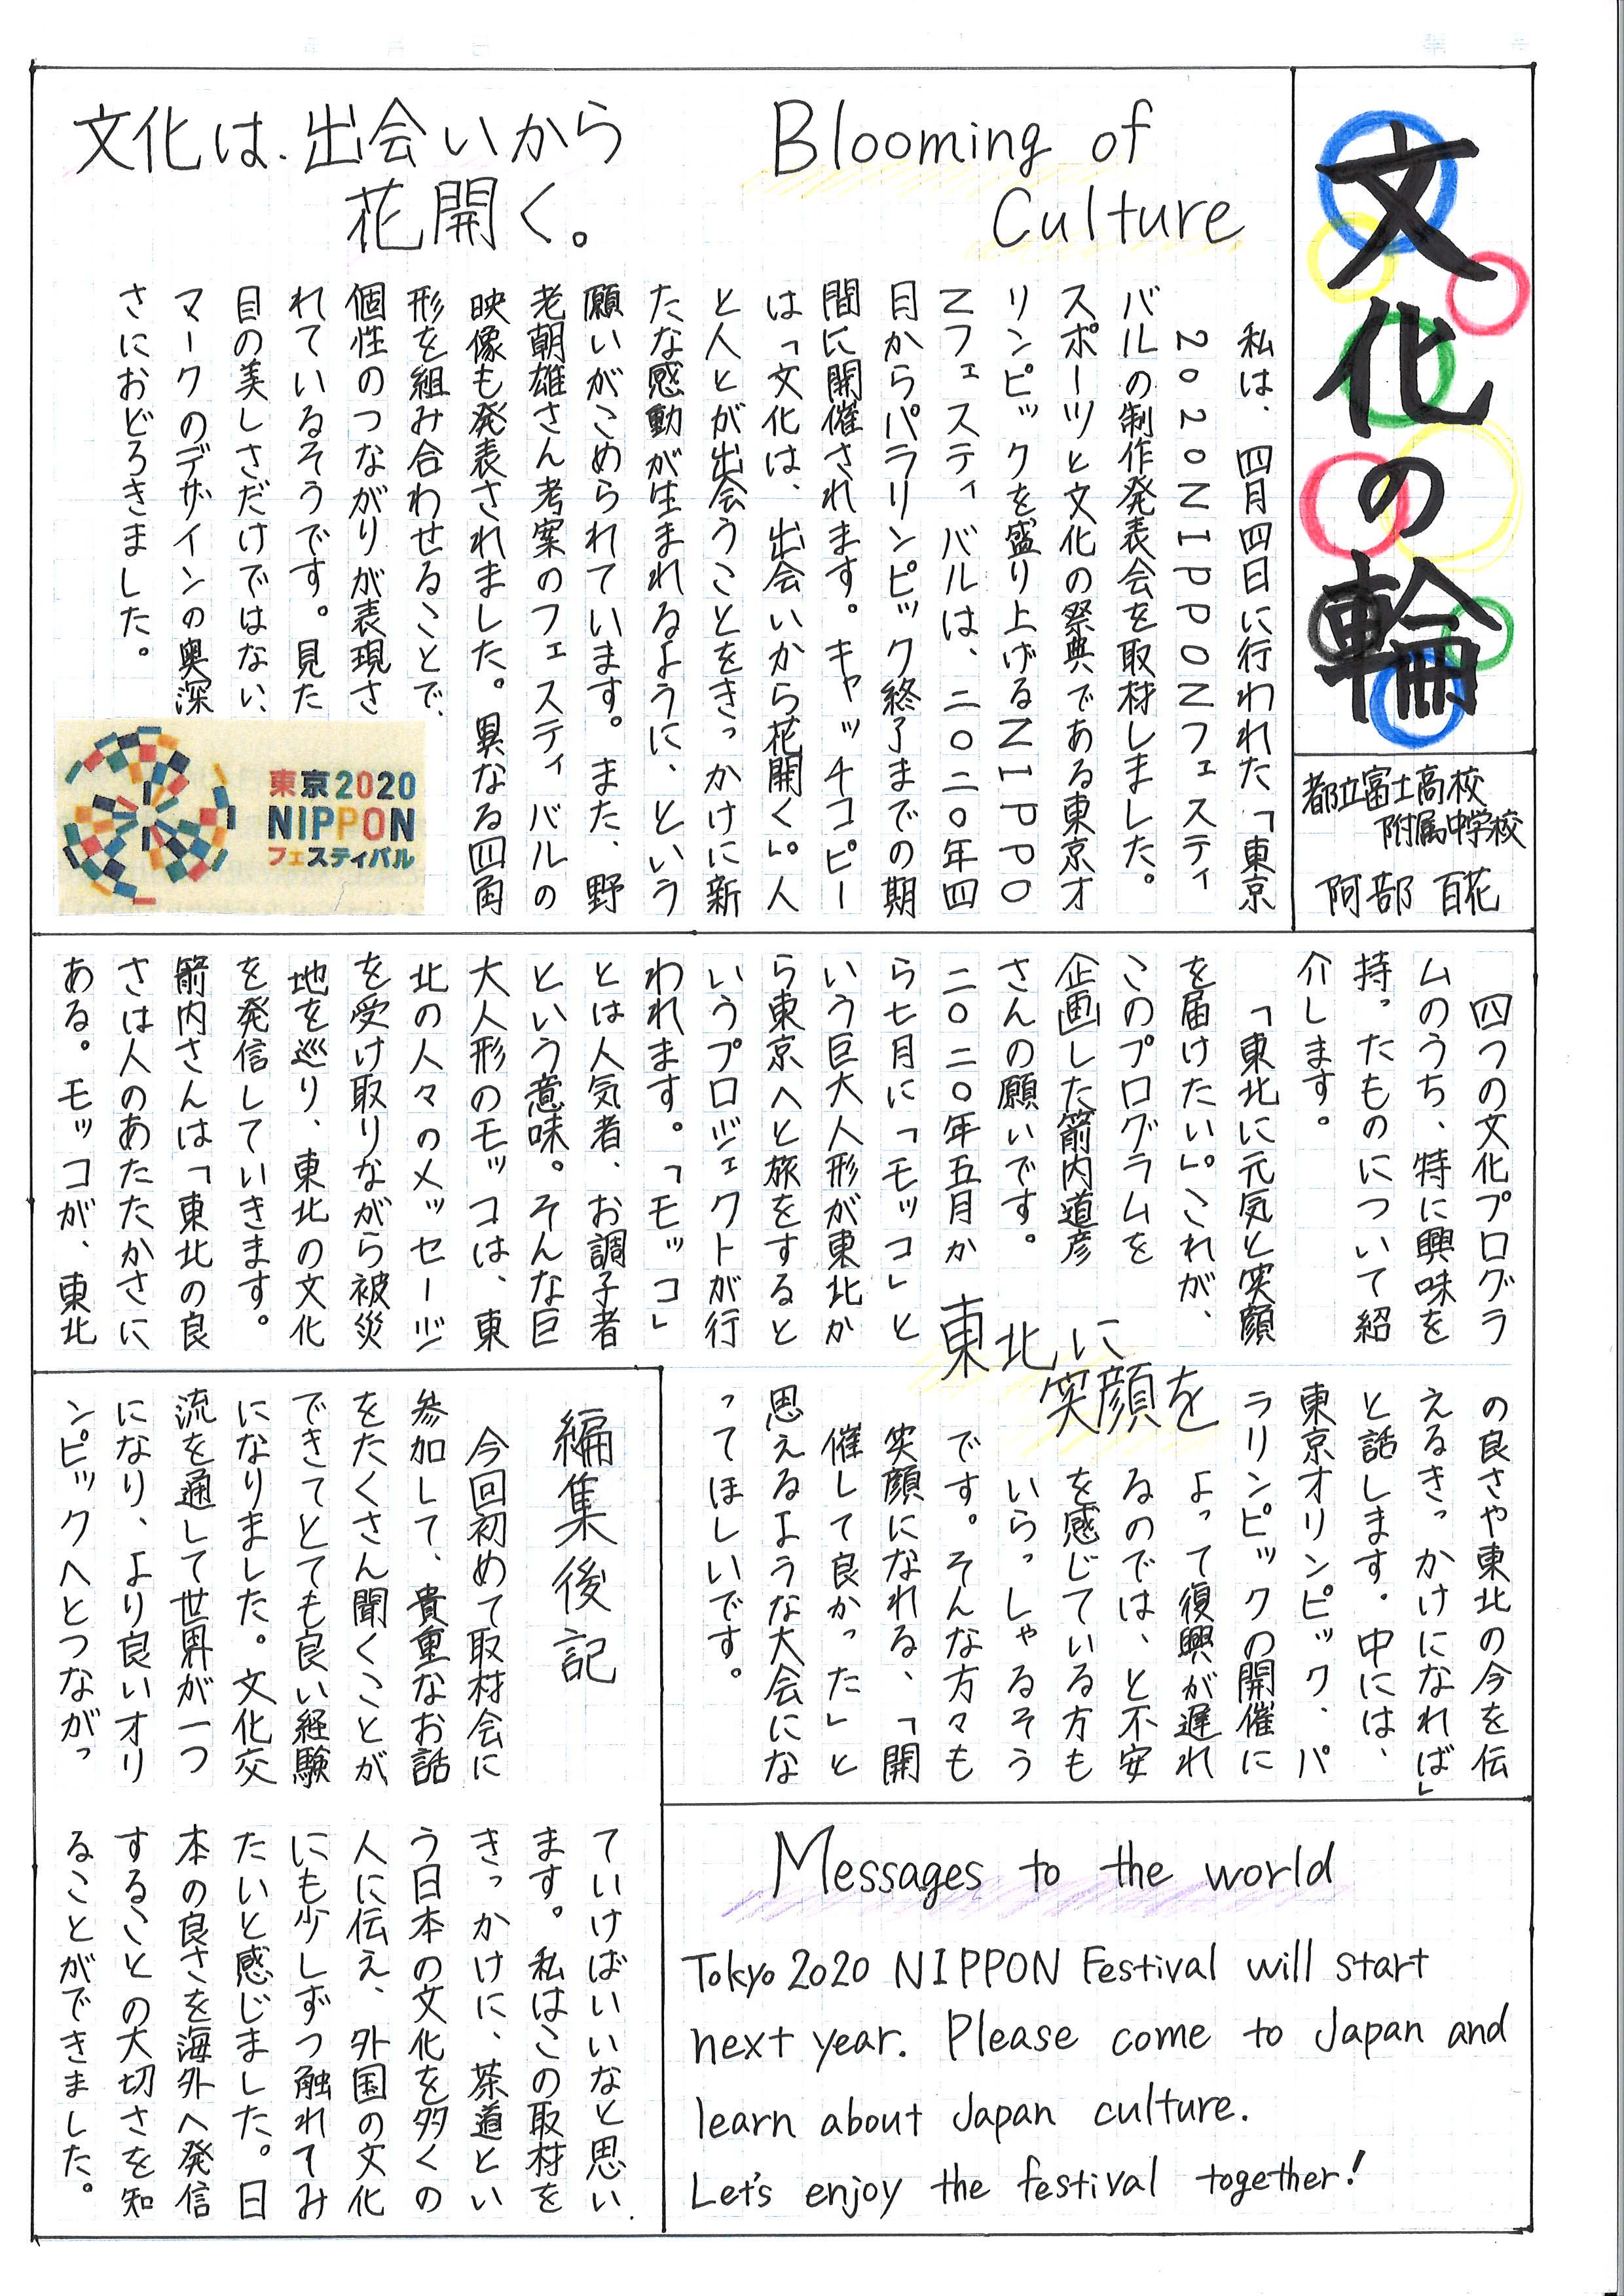 文化の輪
都立富士高校
附属中学校
阿部 百花
Blooming of
Culture
文化は、出会いから
花開く。
私は、四月四日に行われた「東京
2020NIPPONフェスティ
バルの制作発表会を取材しました。
スポーツと文化の祭典である東京オ
リンピックを盛り上げるNIPPO
Nフェスティバルは、二〇二〇年四
月からパラリンピック終了までの期
間に開催されます。キャッチコピー
は「文化は、出会いから花開く。」人
と人とが出会うことをきっかけに新
たな感動が生まれるように、という
願いがこめられています。また、野
老朝雄さん考案のフェスティバルの
映像も発表されました。異なる四角
形を組み合わせることで、
個性のつながりが表現さ
れているそうです。見た
目の美しさだけではない、
マークのデザインの奥深
さにおどろきました。
東京2020
NIPPON
フェスティバル
四つの文化プログラ
ムのうち、特に興味を
持ったものについて紹
介します。
「東北に元気と笑顔
を届けたい。」これが、
このプログラムを
企画した箭内道彦
さんの願いです。
二〇二〇年五月か
ら七月に「モッコ」と
いう巨大人形が東北か
ら東京へと旅をすると
いうプロジェクトが行
われます。「モッコ」
とは人気者、お調子者
という意味。そんな巨
大人形のモッコは、東
北の人々のメッセージ
を受け取りながら被災
地を巡り、東北の文化
を発信していきます。
箭内さんは「東北の良
さは人のあたたかさに
ある。モッコが、東北
東北に
笑顔を
の良さや東北の今を伝
えるきっかけになれば」
と話します。中には、
東京オリンピック、パ
ラリンピックの開催に
よって復興が遅れ
るのでは、と不安
を感じている方も
いらっしゃるそう
です。そんな方々も
笑顔になれる、「開
催して良かった」と
思えるような大会にな
ってほしいです。
編集後記
今回初めて取材会に
参加して、貴重なお話
をたくさん聞くことが
できてとても良い経験
になりました。文化交
流を通して世界が一つ
になり、より良いオリ
ンピックへとつながっ
ていけばいいなと思い
ます。私はこの取材を
きっかけに、茶道とい
う日本の文化を多くの
人に伝え、外国の文化
にも少しずつ触れてみ
たいと感じました。日
本の良さを海外へ発信
することの大切さを知
ることができました。
Messages to the world
Tokyo 2020 NIPPON Festival will start
next year. Please come to Japan and
learn about Japan culture.
Let's enjoy the festival together!